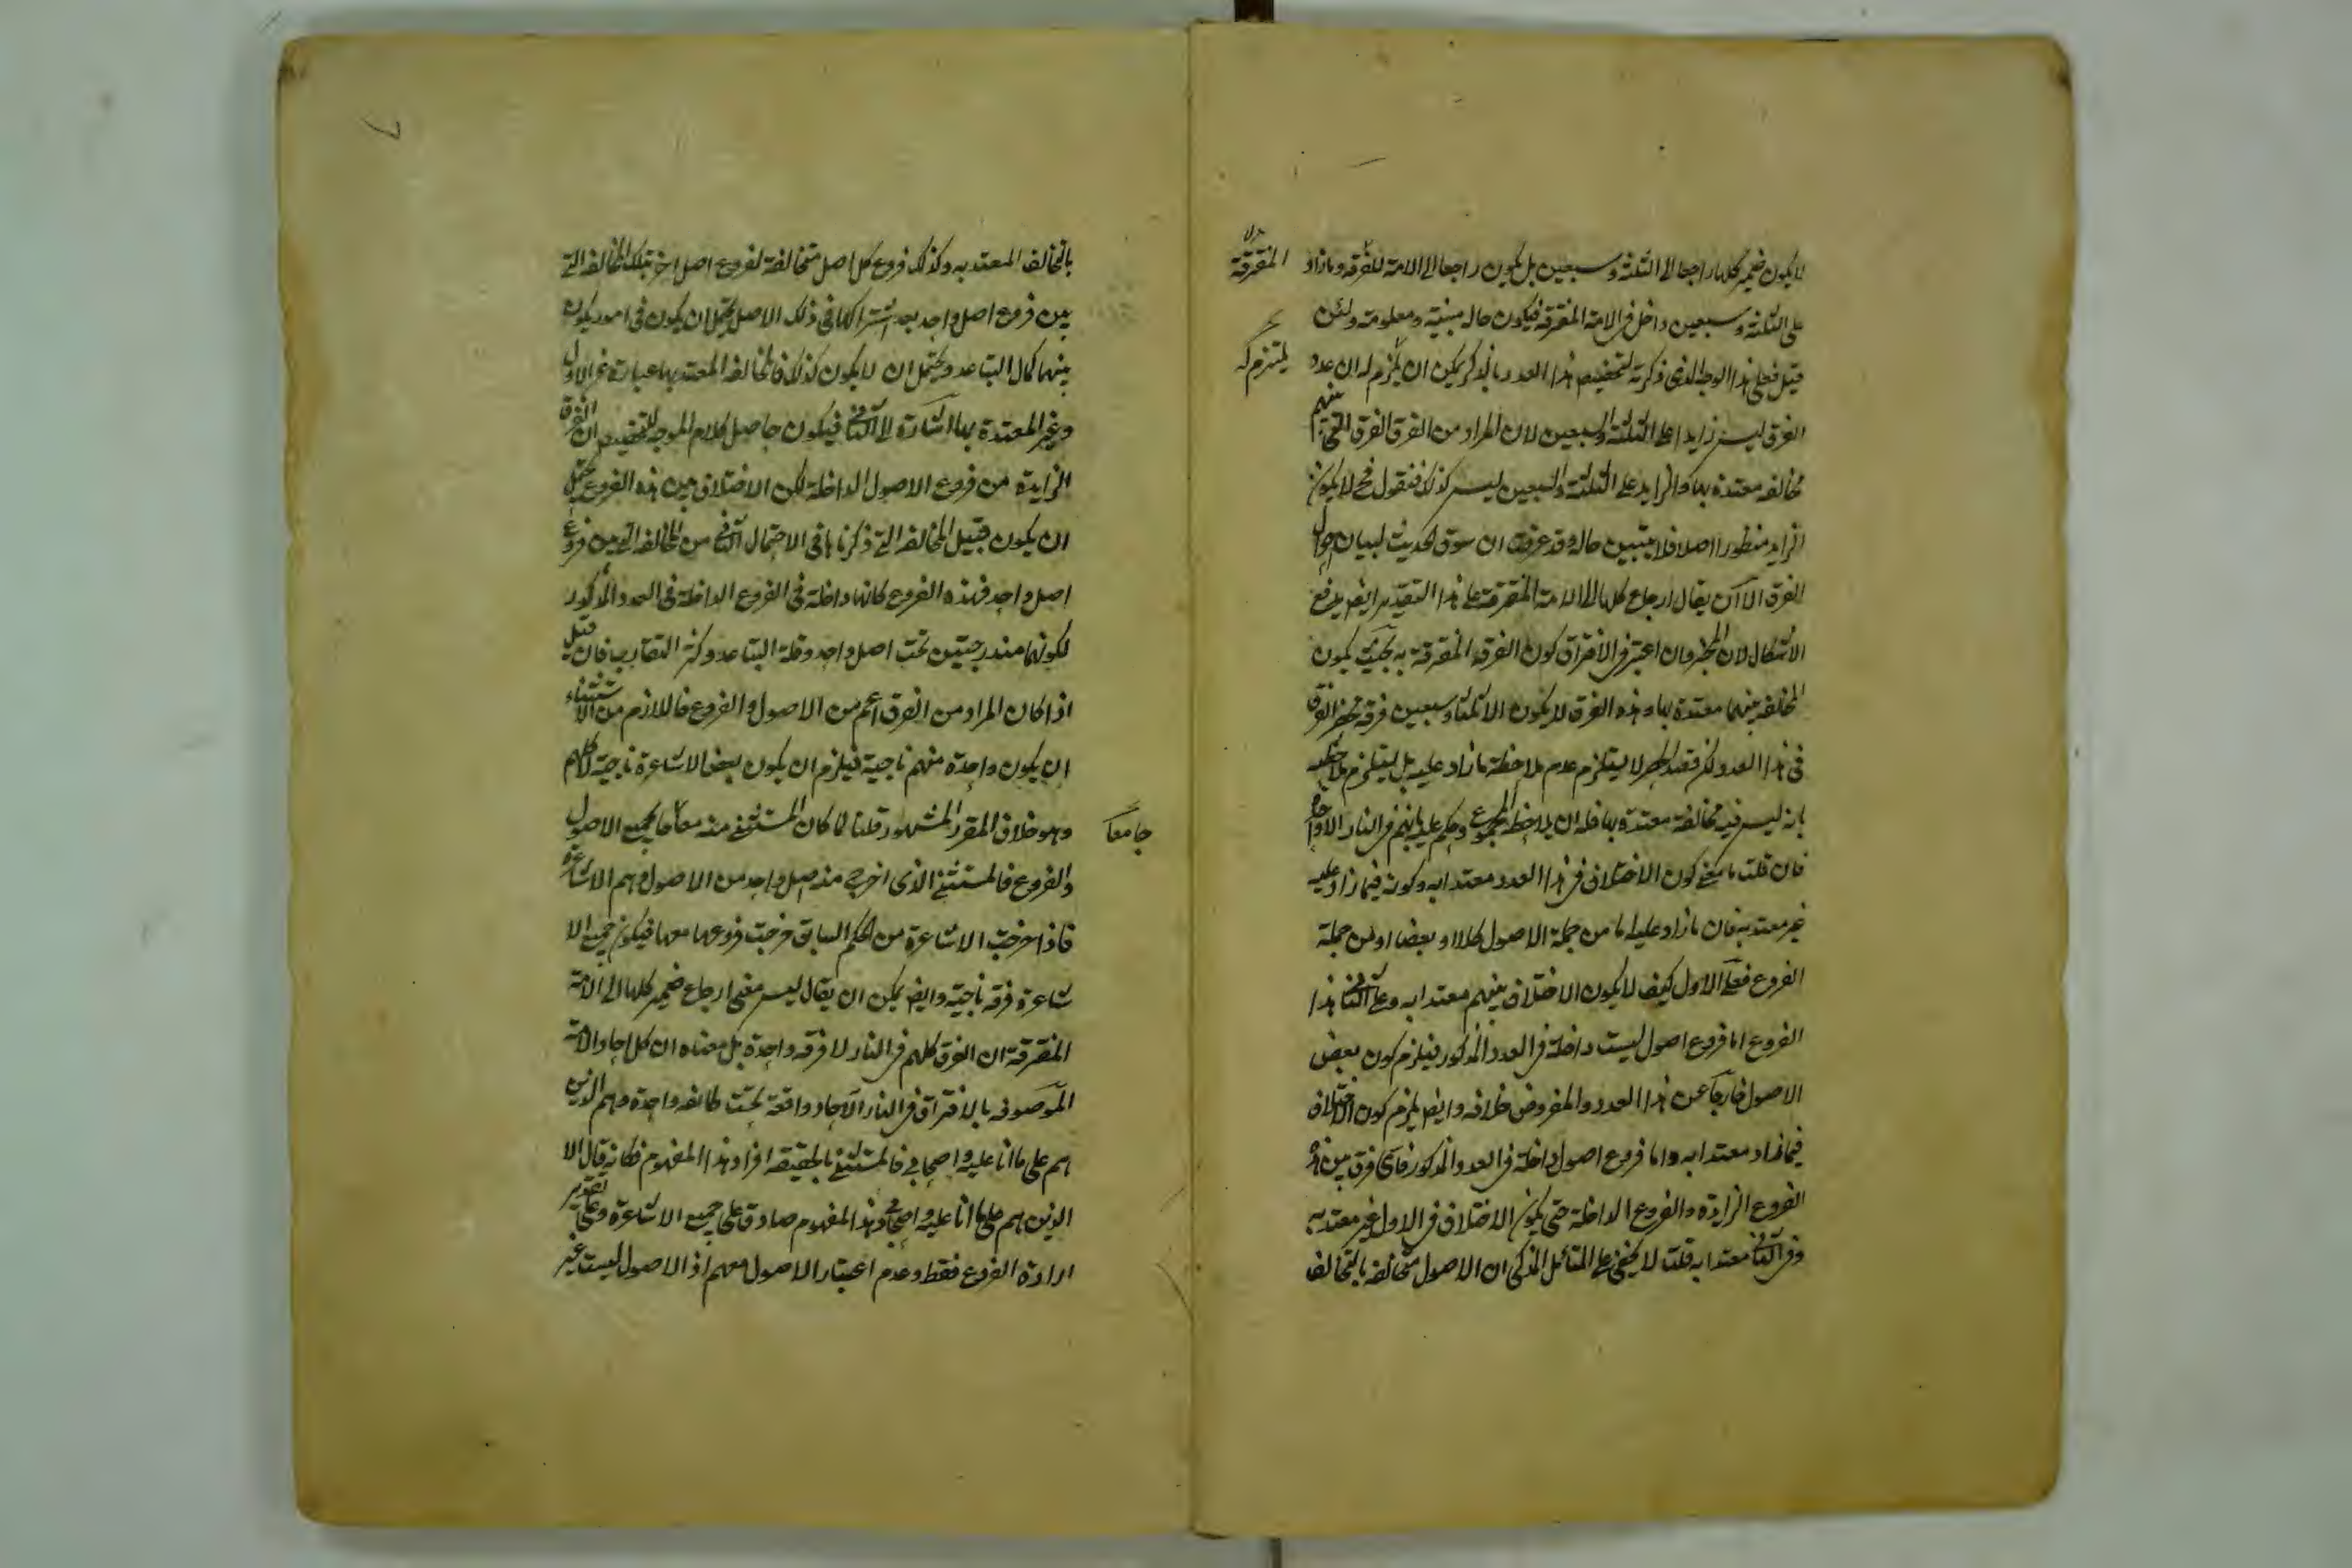 لا يكون ضمير كلها راجعا الى الثلثة وسبعين بل يكون راجعا الى الامة للفرقة وما زاد
المتفرقة
على الثلثة وسبعين داخل فى الامة المتفرقة فيكون حاله مبنية ومعلومة ولئن
قيل فعلى هذا الوجه الذى ذكرته لتخصيص هذا العدد بالذكر يمكن ان يلزم له ان عدد
يلتزم له
الفرق ليس زايدا على الثلثة والسبعين لان المراد من الفرق الفرق التى بينهم
مخالفة معتدة بها والزايد على الثلثة والسبعين ليس كذلك فنقول فح لا يكون
الزايد منظورا اصلا فلا يتبين حاله وقد عرفت ان سوق الحديث لبيان احوال
الفرق الا ان يقال ارجاع كلها الى الامة المتفرقة على هذا التقدير ايضا يدفع
الاشكال لان المخبر وان اعتبر فى الافتراق كون الفرقة المتفرقة به بحيث يكون
المخالفة بينهما معتدة بها وهذه الفرق لا يكون الا ثلثا وسبعين فرقة فحصر الفرق
فى هذا العدد لكن قصد الحصر لا يستلزم عدم ملاحظة ما زاد عليه بل يستلزم ملاحظته
بانه ليس فيه مخالفة معتدة بها فله ان يلاحظ المجموع وحكم عليه بانهم فى النار الا واحدة
فان قلت ما معنى كون الاختلاف فى هذا العدد معتدا به وكونه فيما زاد عليه
غير معتد به فان ما زاد عليه اما من جملة الاصول كلا او بعضا او من جملة
الفروع فعلى الاول كيف لا يكون الاختلاف بينهم معتدا به وعلى الثانى هذا
الفروع اما فروع اصول ليست داخلة فى العدد المذكور فيلزم كون بعض
الاصول خارجا عن هذا العدد والمفروض خلافه وايضا يلزم كون الاختلاف
فيما زاد معتدا به واما فروع اصول داخلة فى العدد المذكور فاى فرق بين هذه
الفروع الزايدة والفروع الداخلة حتى يكون الاختلاف فى الاول غير معتد به
وفى الثانى معتدا به قلت لا يخفى على المتامل الذكى ان الاصول متخالفة بالتخالف
بالتخالف المعتد به وكذلك فروع كل اصل متخالفة لفروع اصل اخر بتلك المخالفة التى
بين فروع اصل واحد بعد اشتراكها فى ذلك الاصل يحتمل ان يكون فى امور يكون
بينهما كمال التباعد ويحتمل ان لا يكون كذلك فالمخالفة المعتد بها عبارة عن الاول
وغير المعتدة بها اشارة الى الثانى فيكون حاصل كلام الموجه للتخصيص ان الفرق
الزايدة من فروع الاصول الداخلة لكن الاختلاف بين هذه الفروع يحتمل
ان يكون قبيل المخالفة التى ذكرناها فى الاحتمال الثانى من المخالفة التى بين فروع
اصل واحد فهذه الفروع كانها داخلة فى الفروع الداخلة فى العدد المذكور
لكونهما مندرجتين تحت اصل واحد وقلة التباعد وكثرة التقارب فان قيل
اذا كان المراد من الفرق اعم من الاصول والفروع فاللازم من الاستثناء
ان يكون واحدة منهم ناجية فيلزم ان يكون بعض الاشاعرة ناجية لا كلهم
وهو خلاف المقرر المشهور قلنا لما كان المستثنى منه معا جا لجميع الاصول
جامعا
والفروع فالمستثنى الذى اخرج منه اصل واحد من الاصول وهم الاشاعرة
فاذا خرجت الاشاعرة من الحكم السابق خرجت فروعها معها فيكون جميع الا
شاعرة فرقة ناجية وايضا يمكن ان يقال ليس معنى ارجاع ضمير كلها الى الامة
المتفرقة ان الفرق كلهم فى النار لا فرقة واحدة بل معناه ان كل احاد الامة
الموصوفة بالافتراق فى النار الا احاد واقعة تحت طائفة واحدة وهم الذين
هم على ما انا عليه واصحابى فالمستثنى بالحقيقة افراد هذا المفهوم فكانه قال الا
الذين هم على ما انا عليه واصحابى وهذا المفهوم صادق على جميع الاشاعرة وعلى تقدير
ارادة الفروع فقط وعدم اعتبار الاصول معهم اذ الاصول ليست غير